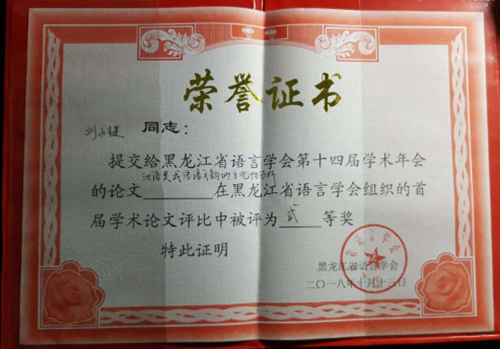 荣誉证书
同志：
提交给黑龙江省语言学会第十四届学术年会
的论文 在黑龙江省语言学会组织的首
届学术论文评比中被评为 贰 等奖
特此证明
黑龙江省语言学会
二〇一八年十月十三日